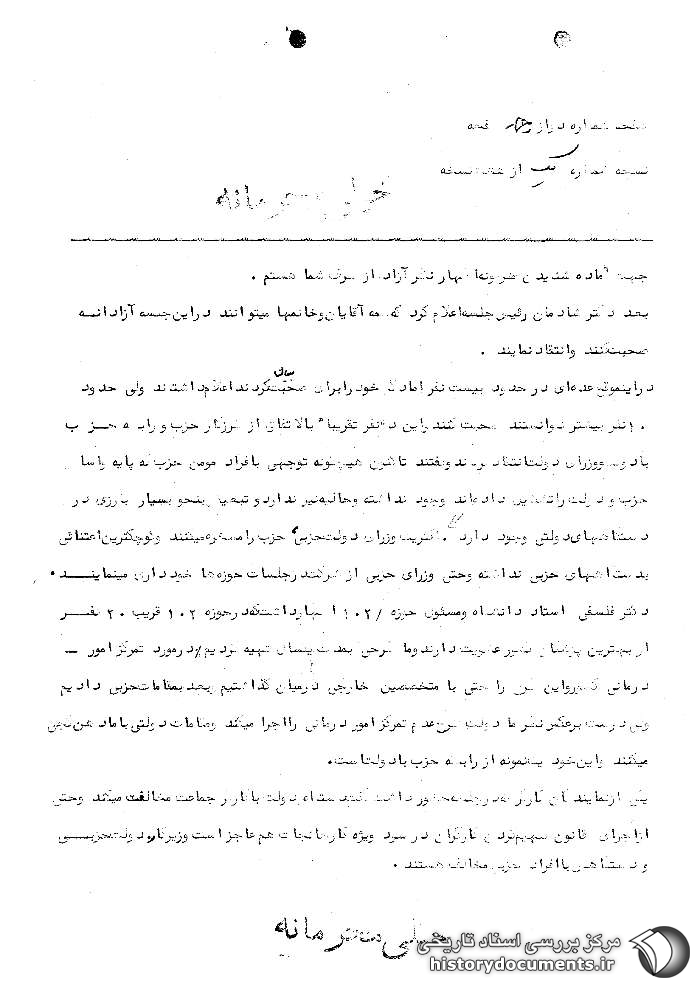 صفحه شماره دو از چهار صفحه
نسخه شماره یک از هفت نسخه
خیلی محرمانه
جهت آماده شنیدن هرگونه اظهار نظر آزاد از طرف شما هستم .
بعد دکتر شادمان رئیس جلسه اعلام کرد که همه آقایان و خانمها میتوانند در این جلسه آزادانه
صحبت کنند و انتقاد نمایند .
در اینموقع عده‌ای در حدود بیست نفر آمادگی خود را برای صحبت کردن اعلام داشتند ولی حدود
۱۰ نفر بیشتر نتوانستند صحبت کنند و این ده نفر تقریبا" بالاتفاق از طرز کار حزب و رابطه حزب
با دولت و وزرای دولت انتقاد کردند و گفتند تاکنون هیچگونه توجهی بافراد مومن حزب که پایه و اساس
حزب و دولت را تشکیل داده‌اند وجود نداشته و حالیه نیز ندارد و تبعیض بنحو بسیار بارزی در
دستگاههای دولتی وجود دارد . اکثریت وزرای دولت حزبی حزب را مسخره میکنند و کوچکترین اعتنائی
بدستگاههای حزبی نداشته و حتی وزرای حزبی از شرکت در جلسات حوزه‌ها خودداری مینمایند .
دکتر فلسفی استاد دانشگاه و مسئول حوزه ۱۰۲ اظهار داشت که در حوزه ۱۰۲ قریب ۲۰ نفر
از بهترین پزشکان کشور عضویت دارند و ما طرحی بمدت یکسال تهیه کردیم در مورد تمرکز امور
درمانی کشور و این طرح را حتی با متخصصین خارجی در میان گذاشتیم و بعد بمقامات حزبی دادیم
ولی درست برعکس نظر ما دولت طرح عدم تمرکز امور درمانی را اجرا میکند و مقامات دولتی با ما دهن کجی
میکنند و این خود یک نمونه از رابطه حزب با دولت است .
یکی از نمایندگان کارگر که در جلسه حضور داشت گفت دستگاه دولت با کارگر جماعت مخالفت میکند و حتی
از اجرای قانون سهیم کردن کارگران در سود ویژه کارخانجات هم عاجز است وزیر کار دولت حزبی
و دستگاهش با افراد حزب مخالف هستند .
خیلی محرمانه
مرکز بررسی اسناد تاریخی
historydocuments.ir